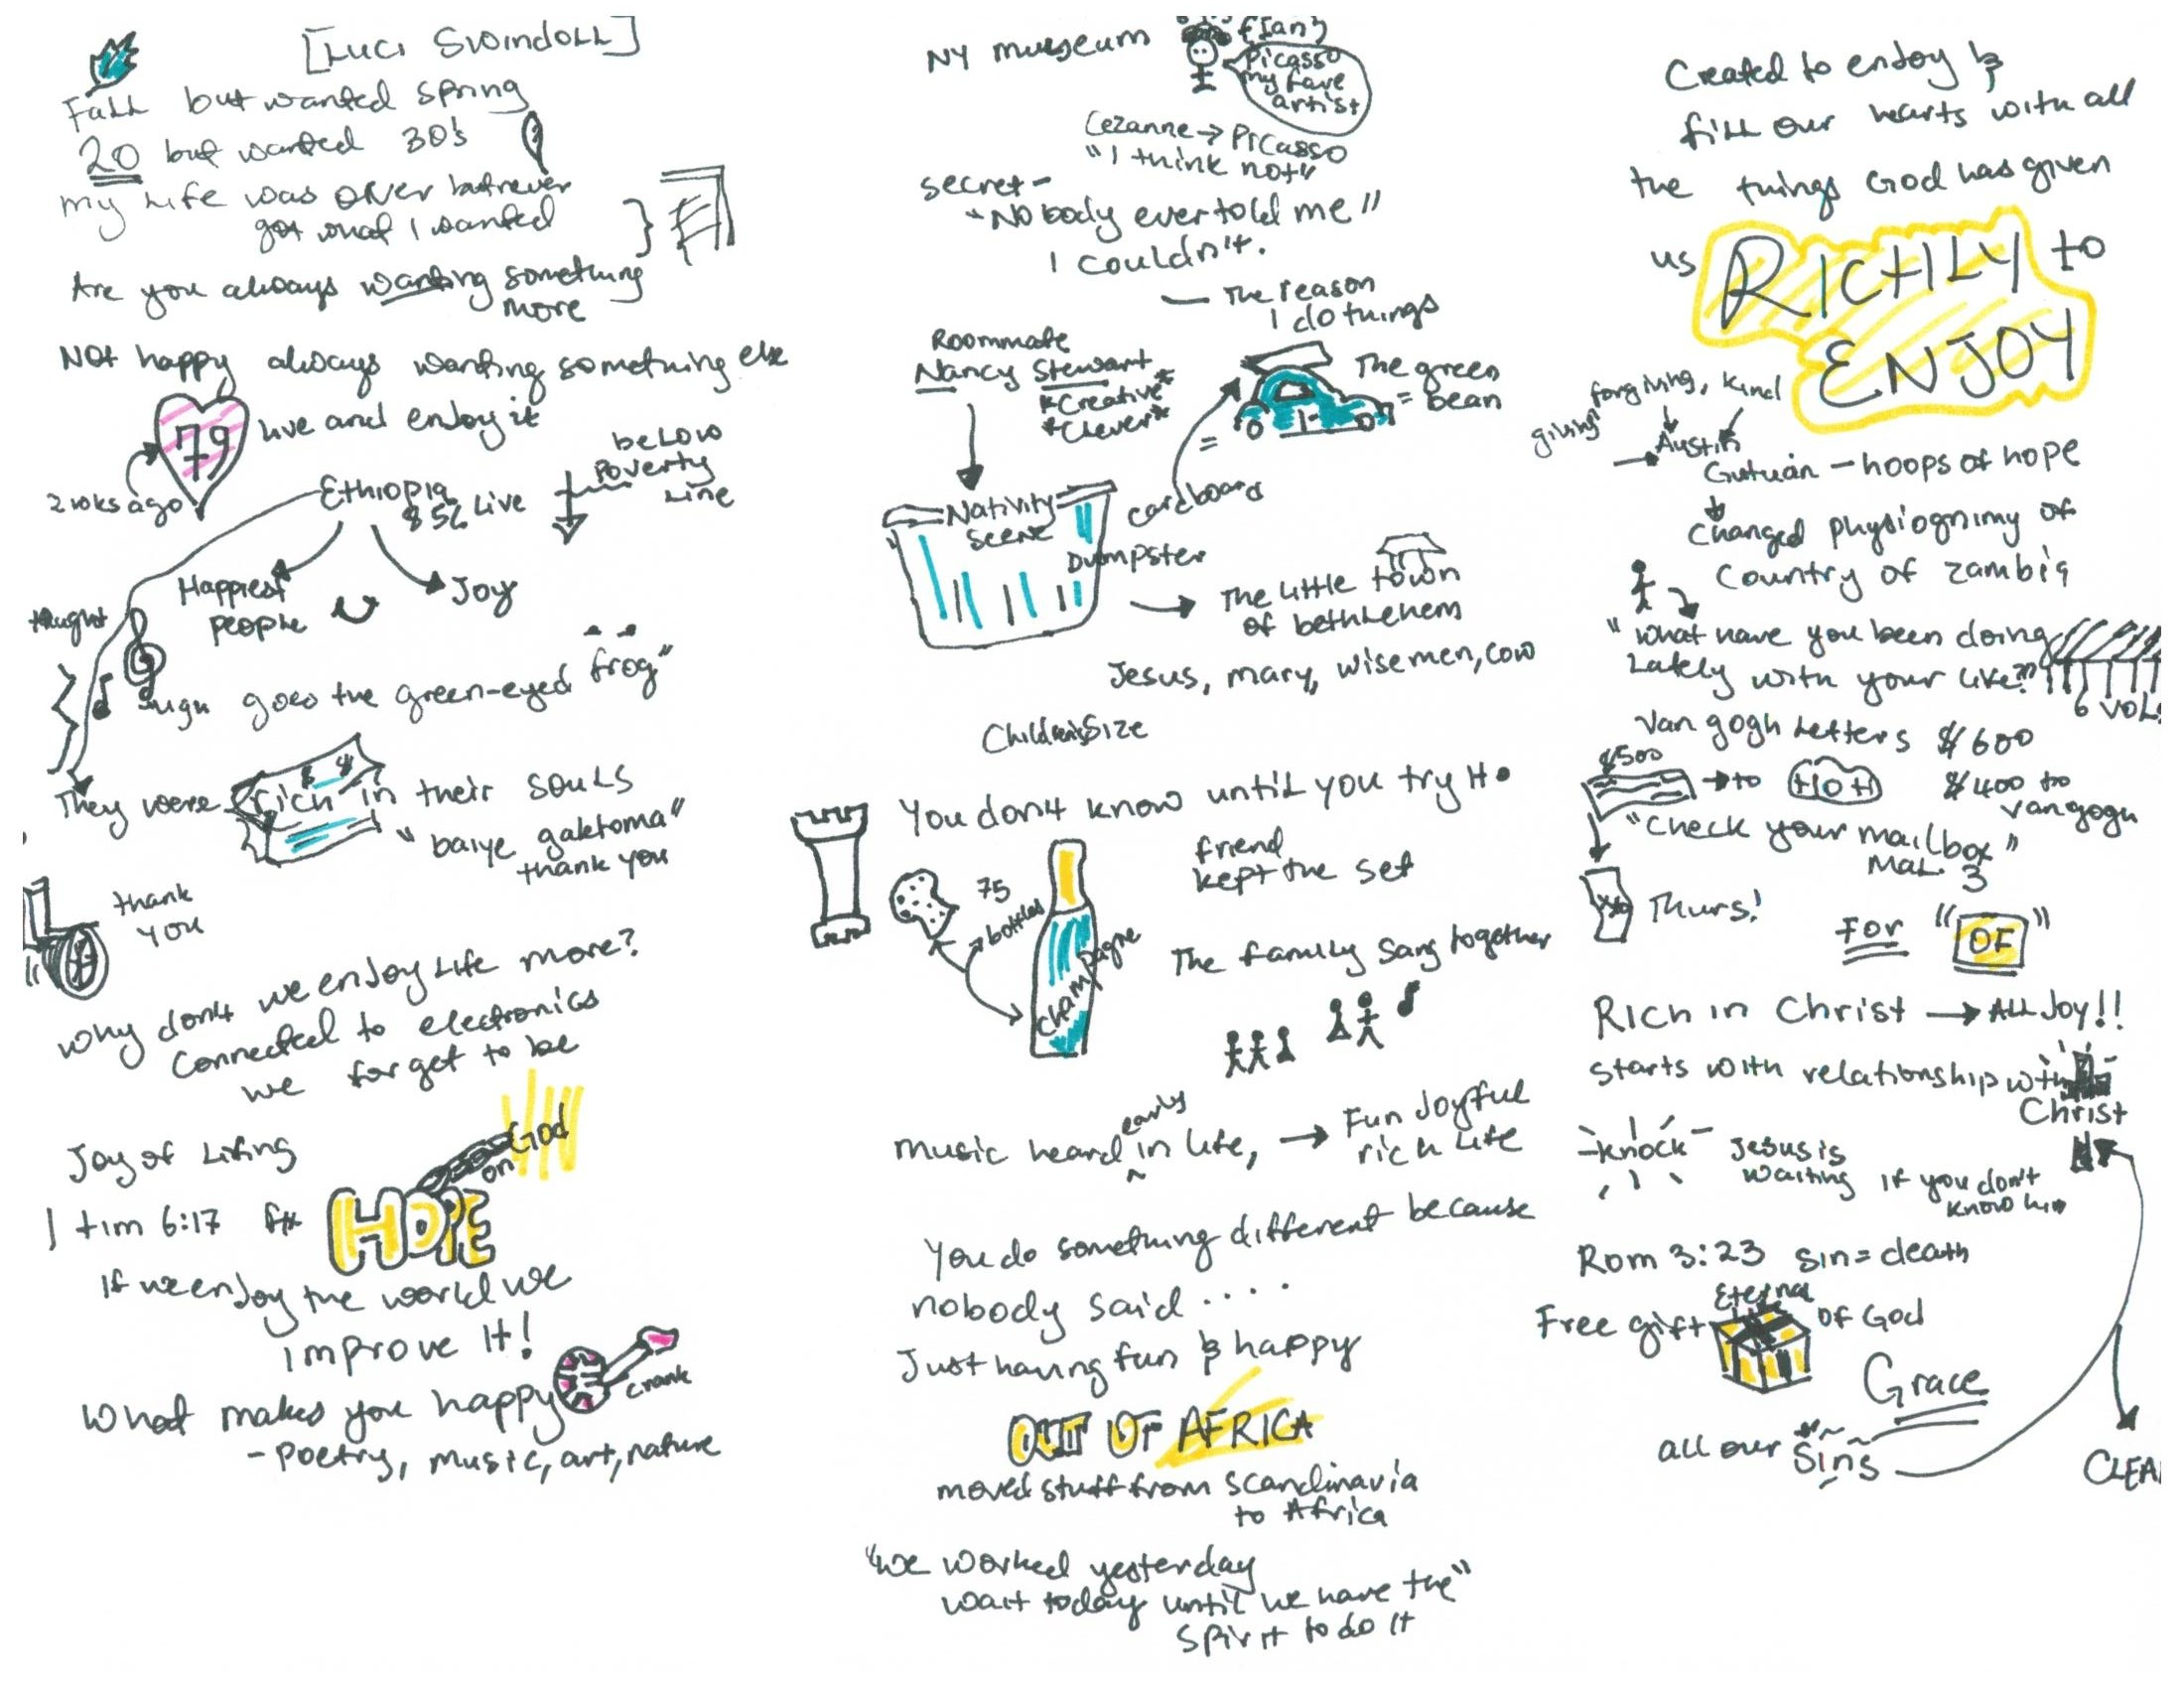 [Luci Swindoll]
Fall but wanted spring
20 but wanted 30's
my life was over but never
got what I wanted
Are you always wanting something
more
Not happy always wanting something else
79 live and enjoy it
2 wks ago
Ethiopia
$56 Live
below
Poverty
Line
Happiest
people
Joy
taught
goes the green-eyed frog"
They were rich in their souls
"baiye galetoma"
thank you
thank
you
Why don't we enjoy life more?
Connected to electronics
we forget to be
Joy of Living
on God
1 tim 6:17 HOPE
If we enjoy the world we
improve It!
What makes you happy
crank
- Poetry, music, art, nature
NY museum
{Ian}
Picasso
my fave
artist
Cezanne → Picasso
"I think not"
secret -
"Nobody ever told me"
I couldn't.
— The reason
I do things
Roommate
Nancy Stewart
*Creative*
*Clever*
= The green
= bean
Nativity
Scene
cardboard
Dumpster
The little town
of bethlehem
Jesus, mary, wisemen, cow
Children's Size
You don't know until you try it.
friend
kept the set
75
bottles
Champagne
The family sang together
music heard early in life, → Fun Joyful
rich life
You do something different because
nobody said ....
Just having fun & happy
OUT OF AFRICA
moved stuff from Scandinavia
to Africa
"We worked yesterday
wait today until we have the"
spirit to do it
Created to enjoy &
fill our hearts with all
the things God has given
us RICHLY to
ENJOY
forgiving, kind
giving
→ Austin
Gutwan - hoops of hope
Changed physiognimy of
Country of Zambia
"What have you been doing
Lately with your life?"
6 VOL
Van gogh Letters $600
$500
→ to HOH $400 to
van gogh
"Check your mailbox"
Mal. 3
Thurs!
For "OF"
Rich in Christ → ALL Joy!!
Starts with relationship with
Christ
-knock- Jesus is
waiting if you don't
know him
Rom 3:23 Sin = death
Eternal
Free gift of God
Grace
all our Sins
CLEA